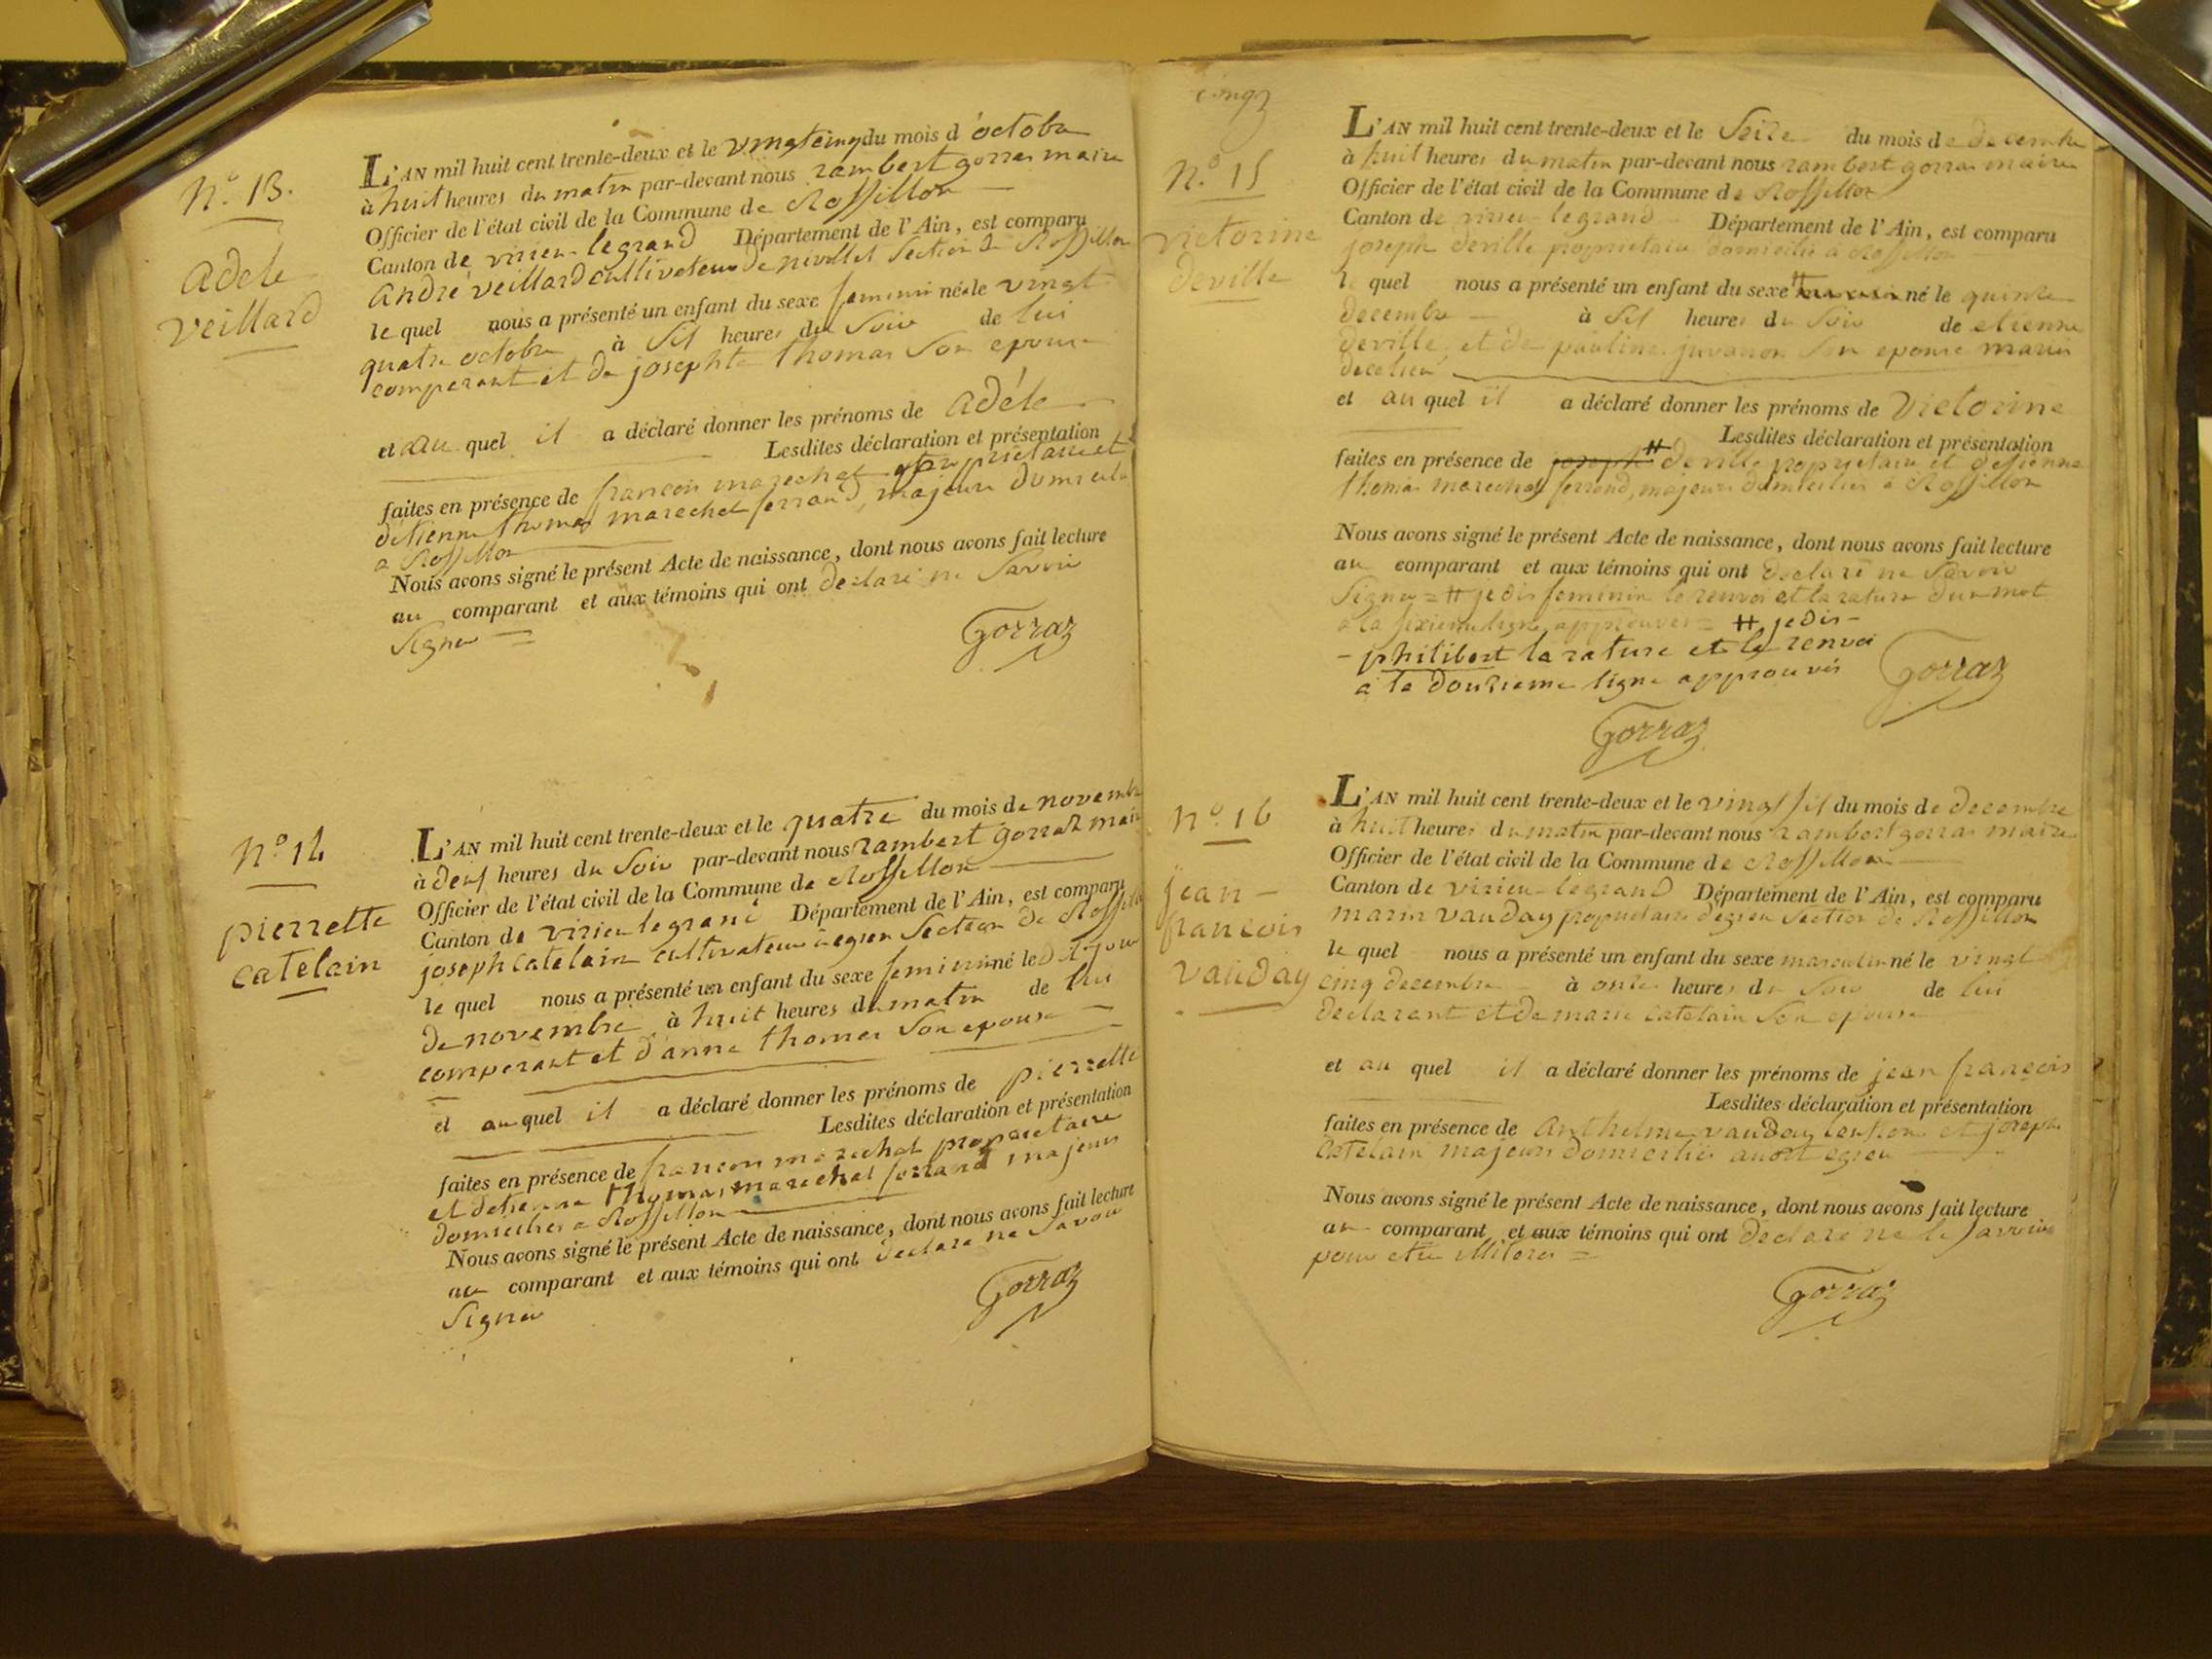 N.º 13.
adèle
veillard
L'AN mil huit cent trente-deux et le vingtcinq du mois d'octobre
à huit heures du matin par-devant nous rambert gorraz maire
Officier de l'état civil de la Commune de Rossillon
Canton de virieu-legrand Département de l'Ain, est comparu
andré veillard cultivateur de nivollet Section de Rossillon
le quel nous a présenté un enfant du sexe feminin né le vingt
quatre octobre à sil heures du soir de lui
comparant et de josephte thomas son epouse
et au quel il a déclaré donner les prénoms de adéle
Lesdites déclaration et présentation
faites en présence de françois marechal proprietaire et
d'etienne thomas marechal ferrand, majeurs domiciliés
a Rossillon
Nous avons signé le présent Acte de naissance, dont nous avons fait lecture
au comparant et aux témoins qui ont declaré ne savoir
signer =
Gorraz
N.º 14
pierrette
catelain
L'AN mil huit cent trente-deux et le quatre du mois de novembre
à deux heures du soir par-devant nous rambert gorraz maire
Officier de l'état civil de la Commune de Rossillon
Canton de virieu legrand Département de l'Ain, est comparu
joseph catelain cultivateur à egieu Section de Rossillon
le quel nous a présenté un enfant du sexe feminin né le dit jour
de novembre à huit heures du matin de lui
comparant et d'anne thomas son epouse
et au quel il a déclaré donner les prénoms de pierrette
Lesdites déclaration et présentation
faites en présence de françois marechal proprietaire
et detienne thomas marechal ferrand majeurs
domiciliés a Rossillon
Nous avons signé le présent Acte de naissance, dont nous avons fait lecture
au comparant et aux témoins qui ont declaré ne savoir
signer
Gorraz
cinq
N.º 15
victorine
deville
L'AN mil huit cent trente-deux et le seize du mois de decembre
à huit heures du matin par-devant nous rambert gorraz maire
Officier de l'état civil de la Commune de Rossillon
Canton de virieu-legrand Département de l'Ain, est comparu
joseph deville proprietaire domicilié à Rossillon
le quel nous a présenté un enfant du sexe né le quinze
decembre à sil heures du soir de etienne
deville, et de pauline juvanon son epouse mariés
de ce lieu
et au quel il a déclaré donner les prénoms de Victorine
Lesdites déclaration et présentation
faites en présence de joseph # deville proprietaire et detienne
thomas marechal ferrand, majeurs domiciliés à Rossillon
Nous avons signé le présent Acte de naissance, dont nous avons fait lecture
au comparant et aux témoins qui ont declaré ne savoir
signer = # je dis feminin le renvoi et la rature d'un mot
a la sixieme ligne approuvés = # je dis -
- philibert la rature et le renvoi
a la douzieme ligne approuvés
Gorraz
Gorraz
N.º 16
jean-
francois
vauday
L'AN mil huit cent trente-deux et le vingt sil du mois de decembre
à huit heures du matin par-devant nous rambert gorraz maire
Officier de l'état civil de la Commune de Rossillon
Canton de virieu-legrand Département de l'Ain, est comparu
marin vauday proprietaire d'egieu Section de Rossillon
le quel nous a présenté un enfant du sexe masculin né le vingt
cinq decembre à onze heures du soir de lui
declarant et de marie catelain son epouse
et au quel il a déclaré donner les prénoms de jean françois
Lesdites déclaration et présentation
faites en présence de anthelme vauday et joseph
catelain majeurs domiciliés audit egieu
Nous avons signé le présent Acte de naissance, dont nous avons fait lecture
au comparant et aux témoins qui ont declaré ne le savoir
pour etre illiteres =
Gorraz